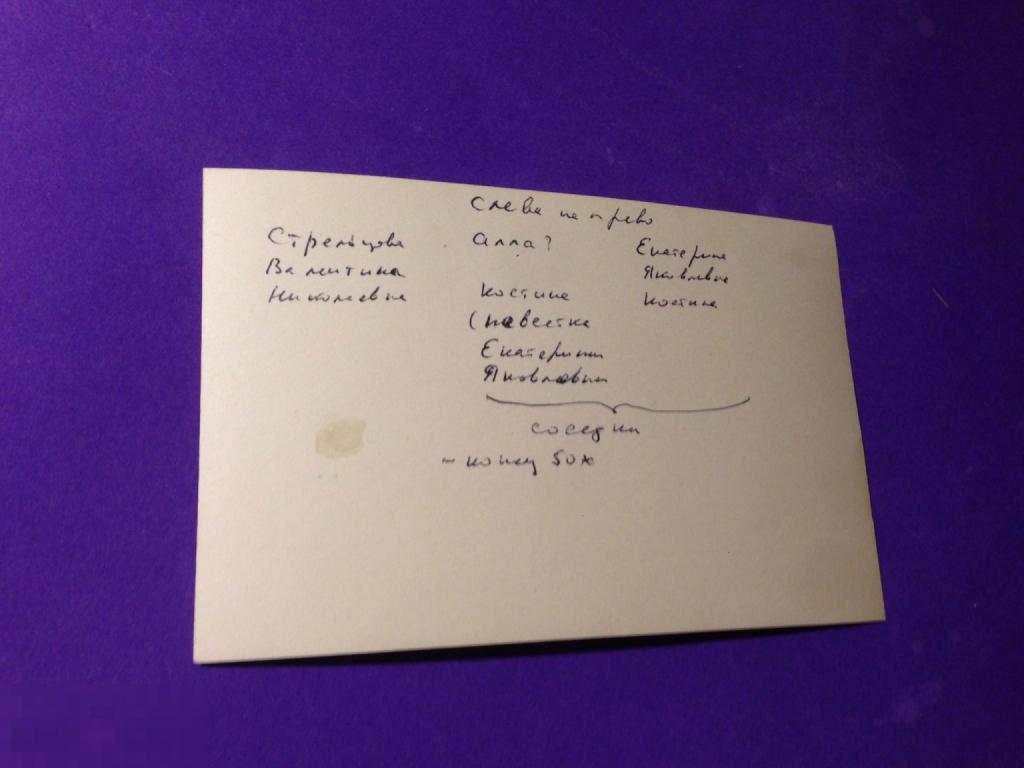 Слева на право
Стрельцова
Валентина
Николаевна
Алла?
Костина
(невестка
Екатерины
Яковлевны
Екатерина
Яковлевна
Костина
соседки
~ конец 50х